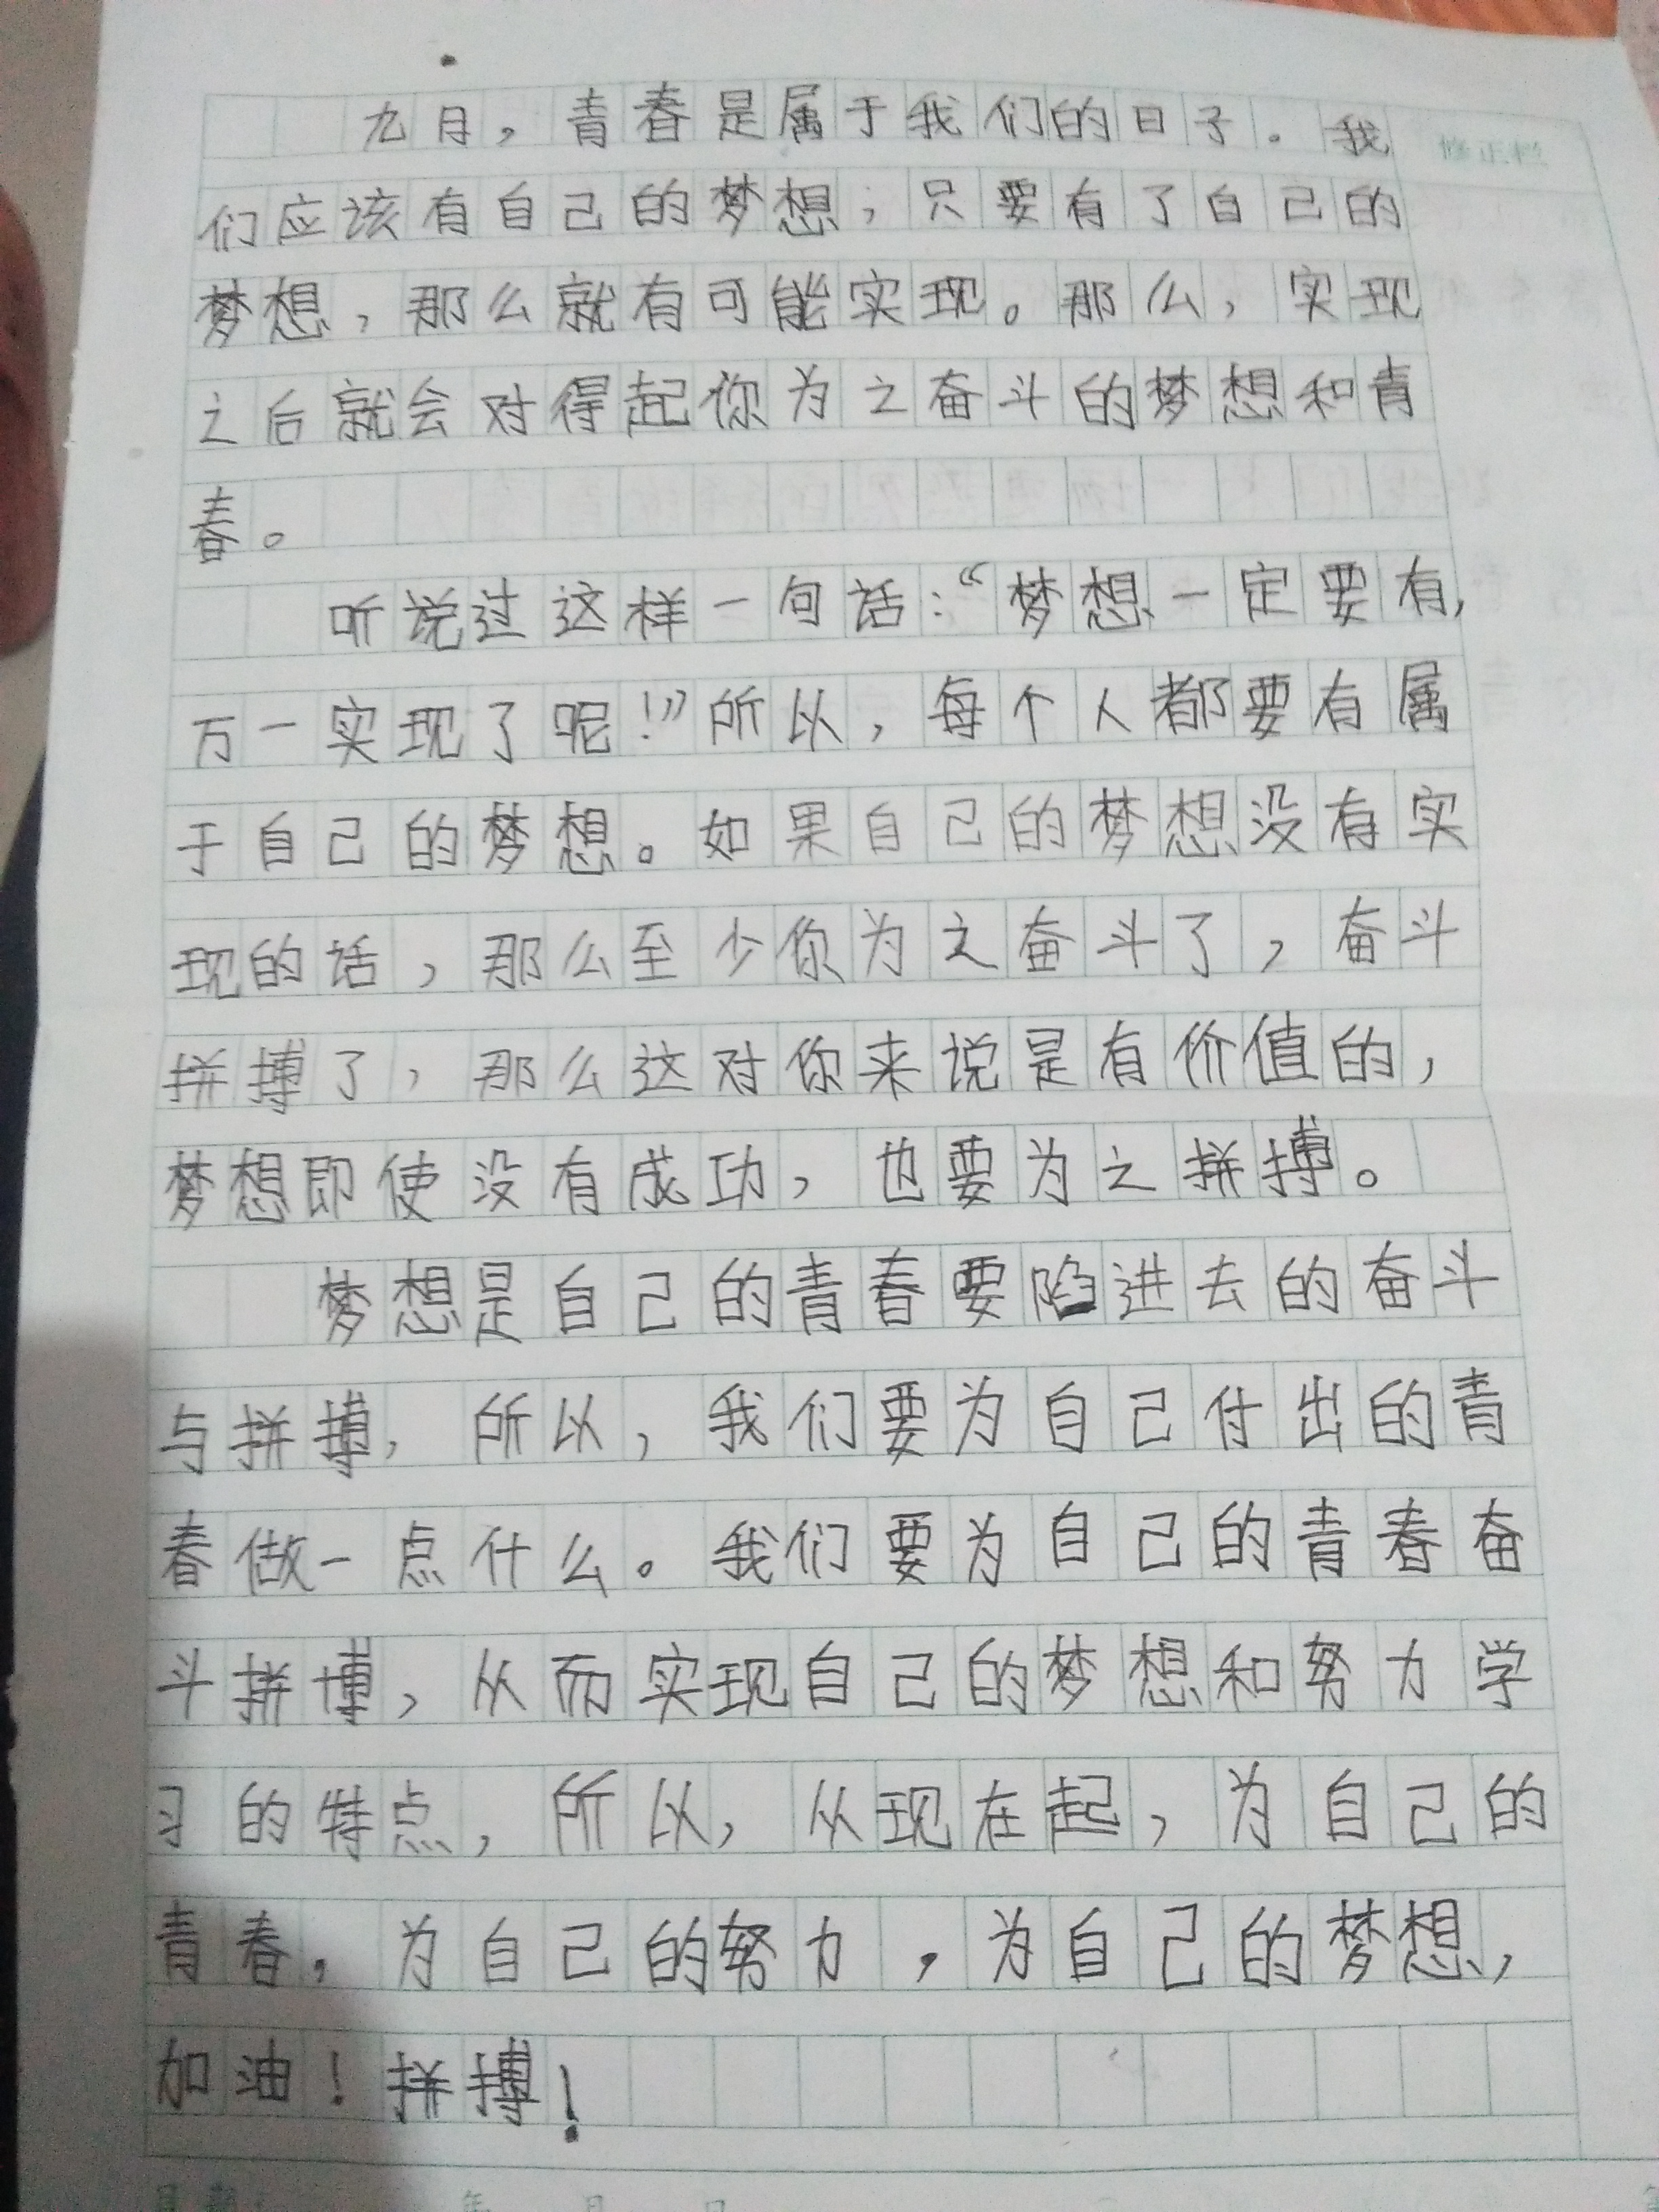 九月，青春是属于我们的日子。我
修正栏
们应该有自己的梦想，只要有了自己的
梦想，那么就有可能实现。那么，实现
之后就会对得起你为之奋斗的梦想和青
春。
听说过这样一句话：“梦想一定要有，
万一实现了呢！”所以，每个人都要有属
于自己的梦想。如果自己的梦想没有实
现的话，那么至少你为之奋斗了，奋斗
拼搏了，那么这对你来说是有价值的，
梦想即使没有成功，也要为之拼搏。
梦想是自己的青春要陷进去的奋斗
与拼搏，所以，我们要为自己付出的青
春做一点什么。我们要为自己的青春奋
斗拼搏，从而实现自己的梦想和努力学
习的特点，所以，从现在起，为自己的
青春，为自己的努力，为自己的梦想，
加油！拼搏！
年 月 日